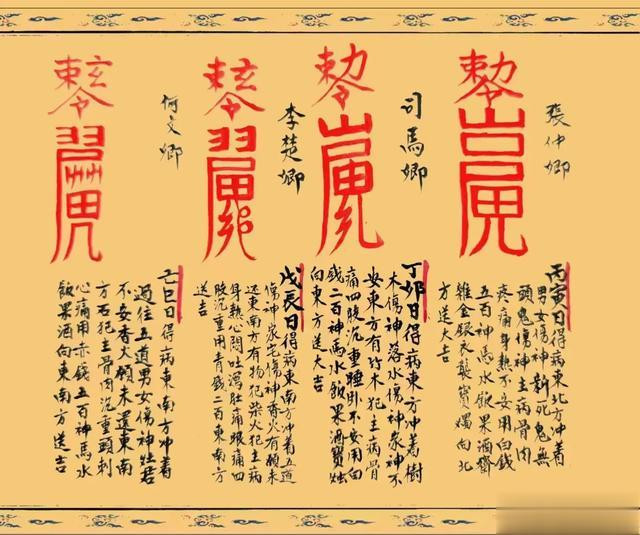 張仲卿
丙寅日得病東北方冲着
男女傷神新死鬼無
頭鬼傷神主病骨肉
疼痛身热不安用白錢
五百神馬水飯果酒齋
雞金銀衣襲寶燭向北
方送大吉
司馬卿
丁夘日得病東方冲着樹
木傷神落水傷神家神不
安東方有竹木犯主病骨
痛四肢沉重睡卧不安用白
錢二百神馬水飯果酒寶燭
向東方送大吉
李楚卿
戊辰日得病東南方冲着五道
傷神家宅傷神香火有願未
还東南方有物犯柴火犯主病
身热心悶吐瀉肚痛眼痛四
肢沉重用青錢二百東南方
送吉
何文卿
己巳日得病東南方冲着
過往五道男女傷神灶君
不安香火願未還東南
方石犯主骨肉沉重頭刺
心痛用赤錢五百神馬水
飯果酒向東南方送吉